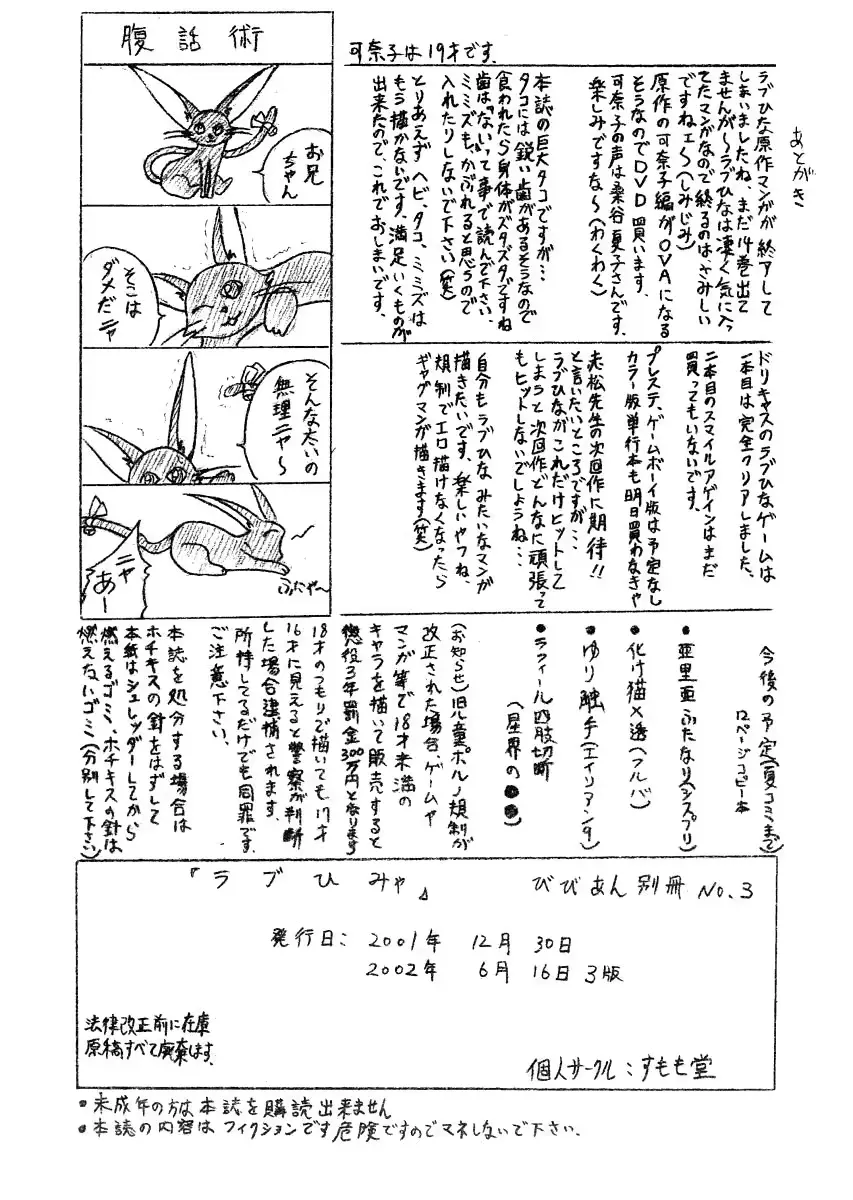 あとがき
ラブひな原作マンガが終アして
しまいましたね、まだ14巻出て
ませんが〜ラブひなは凄く気に入っ
てたマンガなので終るのは、さみしい
ですねェ〜(しみじみ)
原作の可奈子編がOVAになる
そうなのでDVD買います、
可奈子の声は桑谷夏子さんです、
楽しみですな〜(わくわく)
本誌の巨大タコですが…
タコには鋭い歯があるそうなので
食われたら身体がズタズタですね
歯は「ない」って事で読んで下さい、
ミミズも、かぶれると思うので
入れたりしないで下さい(笑)
とりあえずヘビ、タコ、ミミズは
もう描かないです、満足いくものが
出来たので、これでおしまいです、
可奈子は19才です、
腹話術
お兄
ちゃん
そこは
ダメだニャ
そんな太いの
無理ニャ〜
ニャ
あー
ふにゃ〜
ドリキャスのラブひなゲームは
一本目は完全クリアしました、
二本目のスマイルアゲインはまだ
買ってもいないです、
プレステ、ゲームボーイ版は予定なし
カラー版単行本も明日買わなきゃ
赤松先生の次回作に期待!!
と言いたいところですが…
ラブひながこれだけヒットして
しまうと次回作どんなに頑張って
もヒットしないでしょうね…
自分もラブひなみたいなマンガ
描きたいです、楽しいやつね、
規制でエロ描けなくなったら
ギャグマンガ描きます(笑)
今後の予定(夏コミまで)
12ページコピー本
●亜里亜ふたなり(シスプリ)
●化け猫×透(フルバ)
●ゆり触手(エイリアン9)
●ラフィール四肢切断
(星界の●●)
(お知らせ)児童ポルノ規制が
改正された場合、ゲームや
マンガ等で18才未満の
キャラを描いて販売すると
懲役3年罰金300万円となります
18才のつもりで描いても17才
16才に見えると警察が判断
した場合逮捕されます、
所持してるだけでも同罪です、
ご注意下さい、
本誌を処分する場合は
ホチキスの針をはずして
本紙はシュレッダーしてから
燃えるゴミ、ホチキスの針は
燃えないゴミ(分別して下さい)
『ラブひみゃ』 びびあん別冊 No.3
発行日: 2001年 12月 30日
2002年 6月 16日 3版
法律改正前に在庫
原稿すべて廃棄します、
個人サークル:すもも堂
●未成年の方は本誌を購読出来ません
●本誌の内容はフィクションです危険ですのでマネしないで下さい、